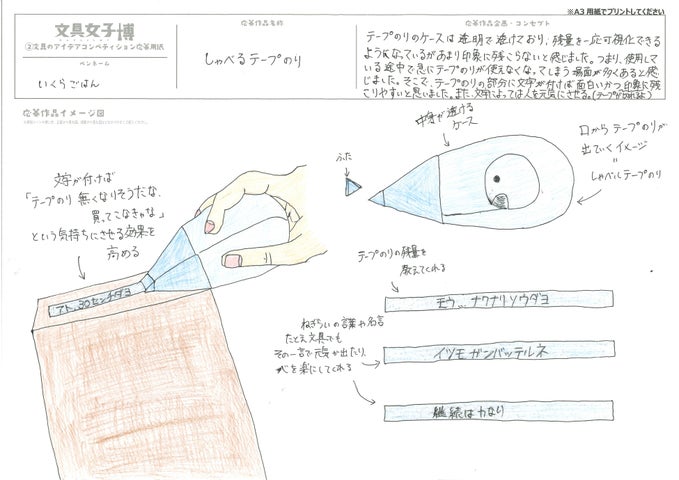 ※A3 用紙でプリントしてください
文具女子博
②文具のアイデアコンペティション応募用紙
ペンネーム
いくらごはん
応募作品名称
しゃべるテープのり
応募作品企画・コンセプト
テープのりのケースは透明で透けており、残量を一応可視化できる
ようになっているがあまり印象に残こらないと感じました。つまり、使用して
いる途中で急にテープのりが使えなくなってしまう場面が多くあると感
じました。そこで、テープのりの部分に文字が付けば面白いかつ印象に残
こりやすいと思いました。また、文字によっては人を元気にさせる。
応募作品イメージ図
文字が付けば
「テープのり 無くなりそうだな、
買ってこなきゃな」
という気持ちにさせる効果を
高める
アト、30センチダヨ
中身が透ける
ケース
ふた
口からテープのりが
出ていくイメージ
=
しゃべルテープのり
テープのりの残量を
教えてくれる
モウ、、ナクナリソウダヨ
ねぎらいの言葉や名言
たとえ文具でも
その一言で元気が出たり、
心を楽にしてくれる
イツモガンバッテルネ
継続は力なり